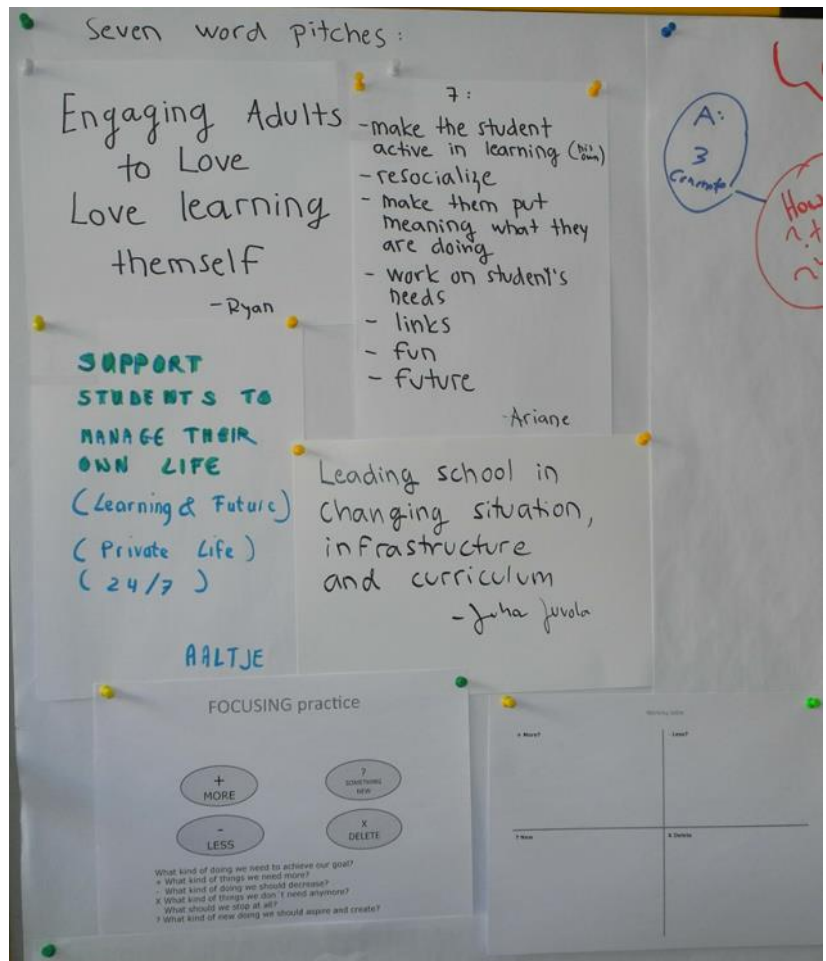 Seven word pitches:
Engaging Adults
to Love
Love learning
themself
- Ryan
7:
- make the student
active in learning (his own)
- resocialize
- make them put
meaning what they
are doing
- work on student's
needs
- links
- fun
- future
- Ariane
SUPPORT
STUDENTS TO
MANAGE THEIR
OWN LIFE
(Learning & Future)
(Private Life)
(24/7)
AALTJE
Leading school in
changing situation,
infrastructure
and curriculum
- Juha Juvola
A:
3
How
FOCUSING practice
+
MORE
?
SOMETHING
NEW
-
LESS
X
DELETE
What kind of doing we need to achieve our goal?
+ What kind of things we need more?
- What kind of doing we should decrease?
X What kind of things we don´t need anymore?
What should we stop at all?
? What kind of new doing we should aspire and create?
+ More?
- Less?
? New
X Delete